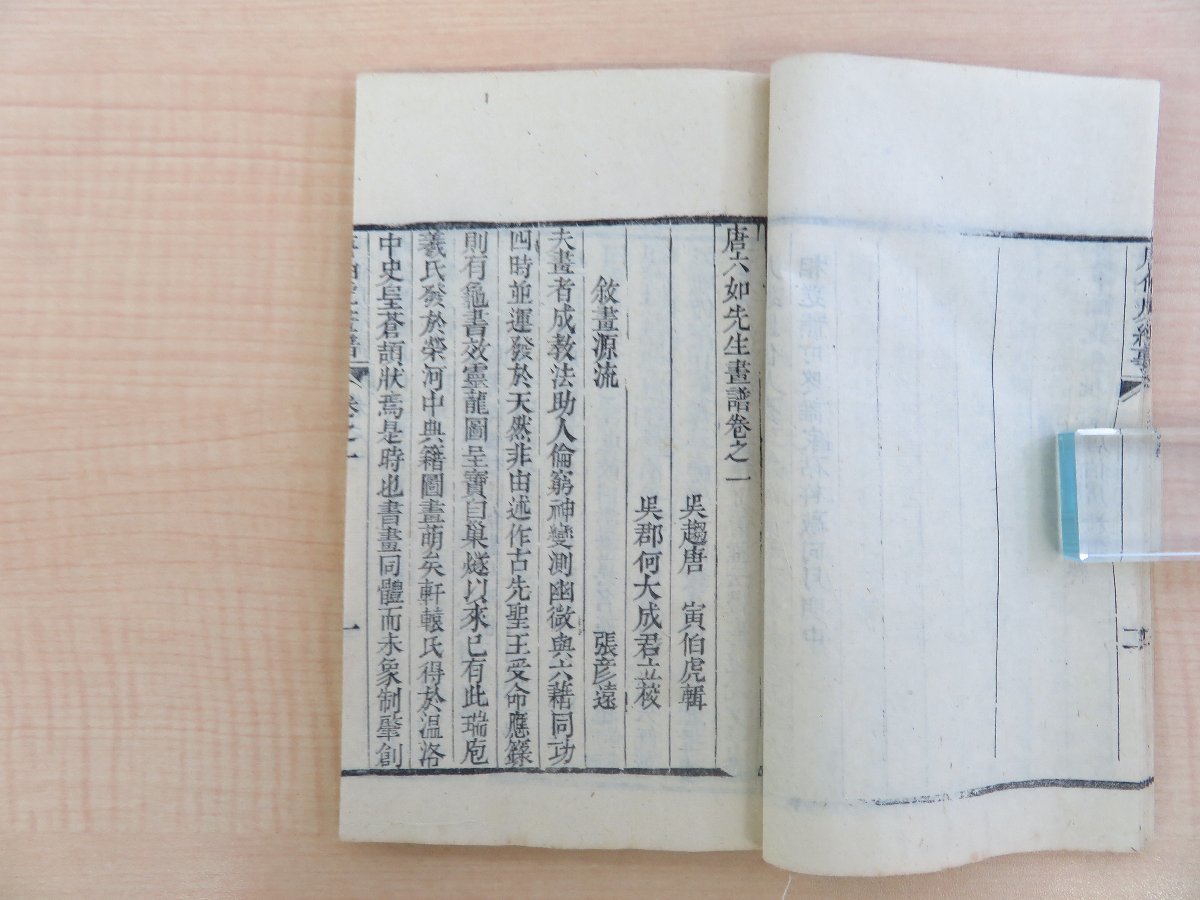 唐六如先生畫譜卷之一
吳趨唐 寅伯虎輯
吳郡何大成君立校
敘畫源流 張彥遠
夫畫者成教法助人倫窮神變測幽微與六藉同功
四時並運發於天然非由述作古先聖王受命應籙
則有龜書效靈龍圖呈寶自巢燧以來已有此瑞庖
羲氏發於榮河中典籍圖畫萌矣軒轅氏得於温洛
中史皇蒼頡狀焉是時也書畫同體而未象制肇創
卷之一
一